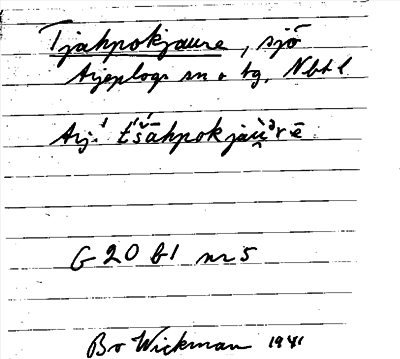 Tjahpokjaure, sjö
Arjeplogs sn o tg. Nbtl
Arj. t́š́āhpokjau̯ᵊrē
G 20 b1 nr 5
Bo Wickman 1941